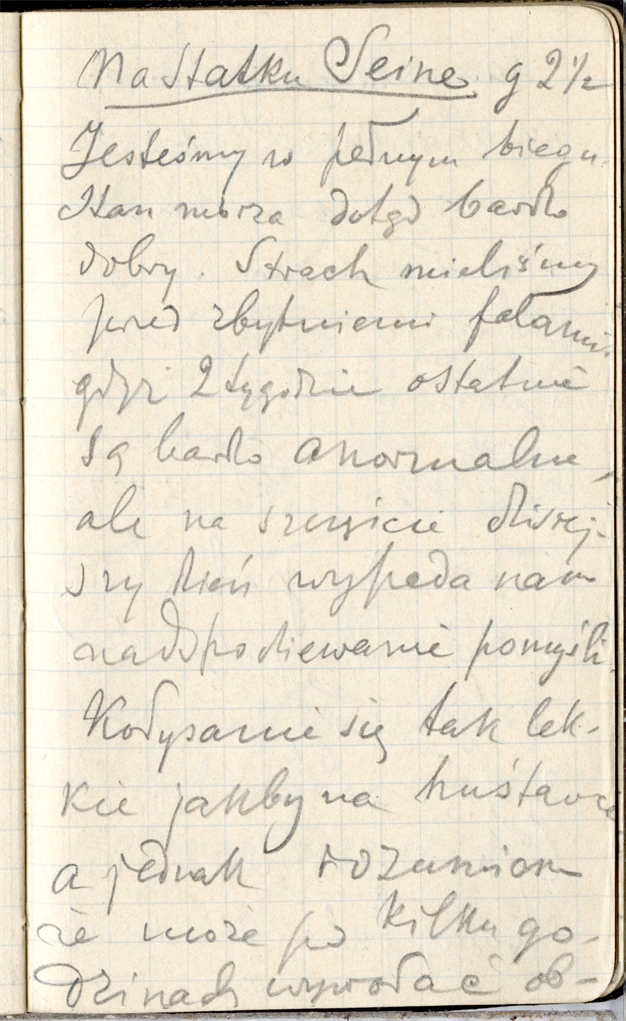 Na statku Seine g 2½
Jesteśmy w pełnym biegu.
Stan morza dotąd bardzo
dobry. Strach mieliśmy
przed zbytniemi falami
gdyż 2 tygodnie ostatnie
są bardzo anormalne,
ale na szczęście dzisiej-
szy dzień wypada nam
nadspodziewanie pomyśln.
Kołysanie się tak lek-
kie jakby na huśtawce
a jednak rozumiem
że może po kilku go-
dzinach wywołać ob-